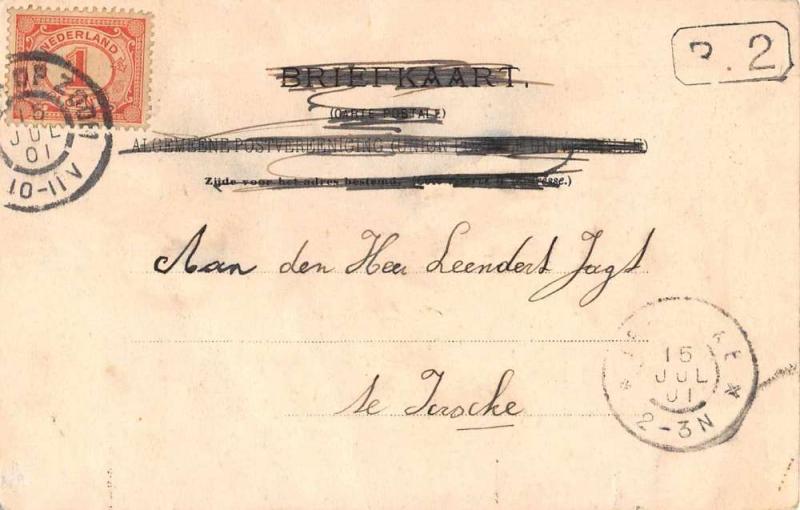 NEDERLAND
1
OP ZOOM
15
JUL
01
10-11V
2
BRIEFKAART.
(CARTE POSTALE)
ALGEMEENE POSTVEREENIGING (UNION
Zijde voor het adres bestemd.
Aan den Heer Leendert Jagt
te Ierseke
KE
15
JUL
01
2-3N